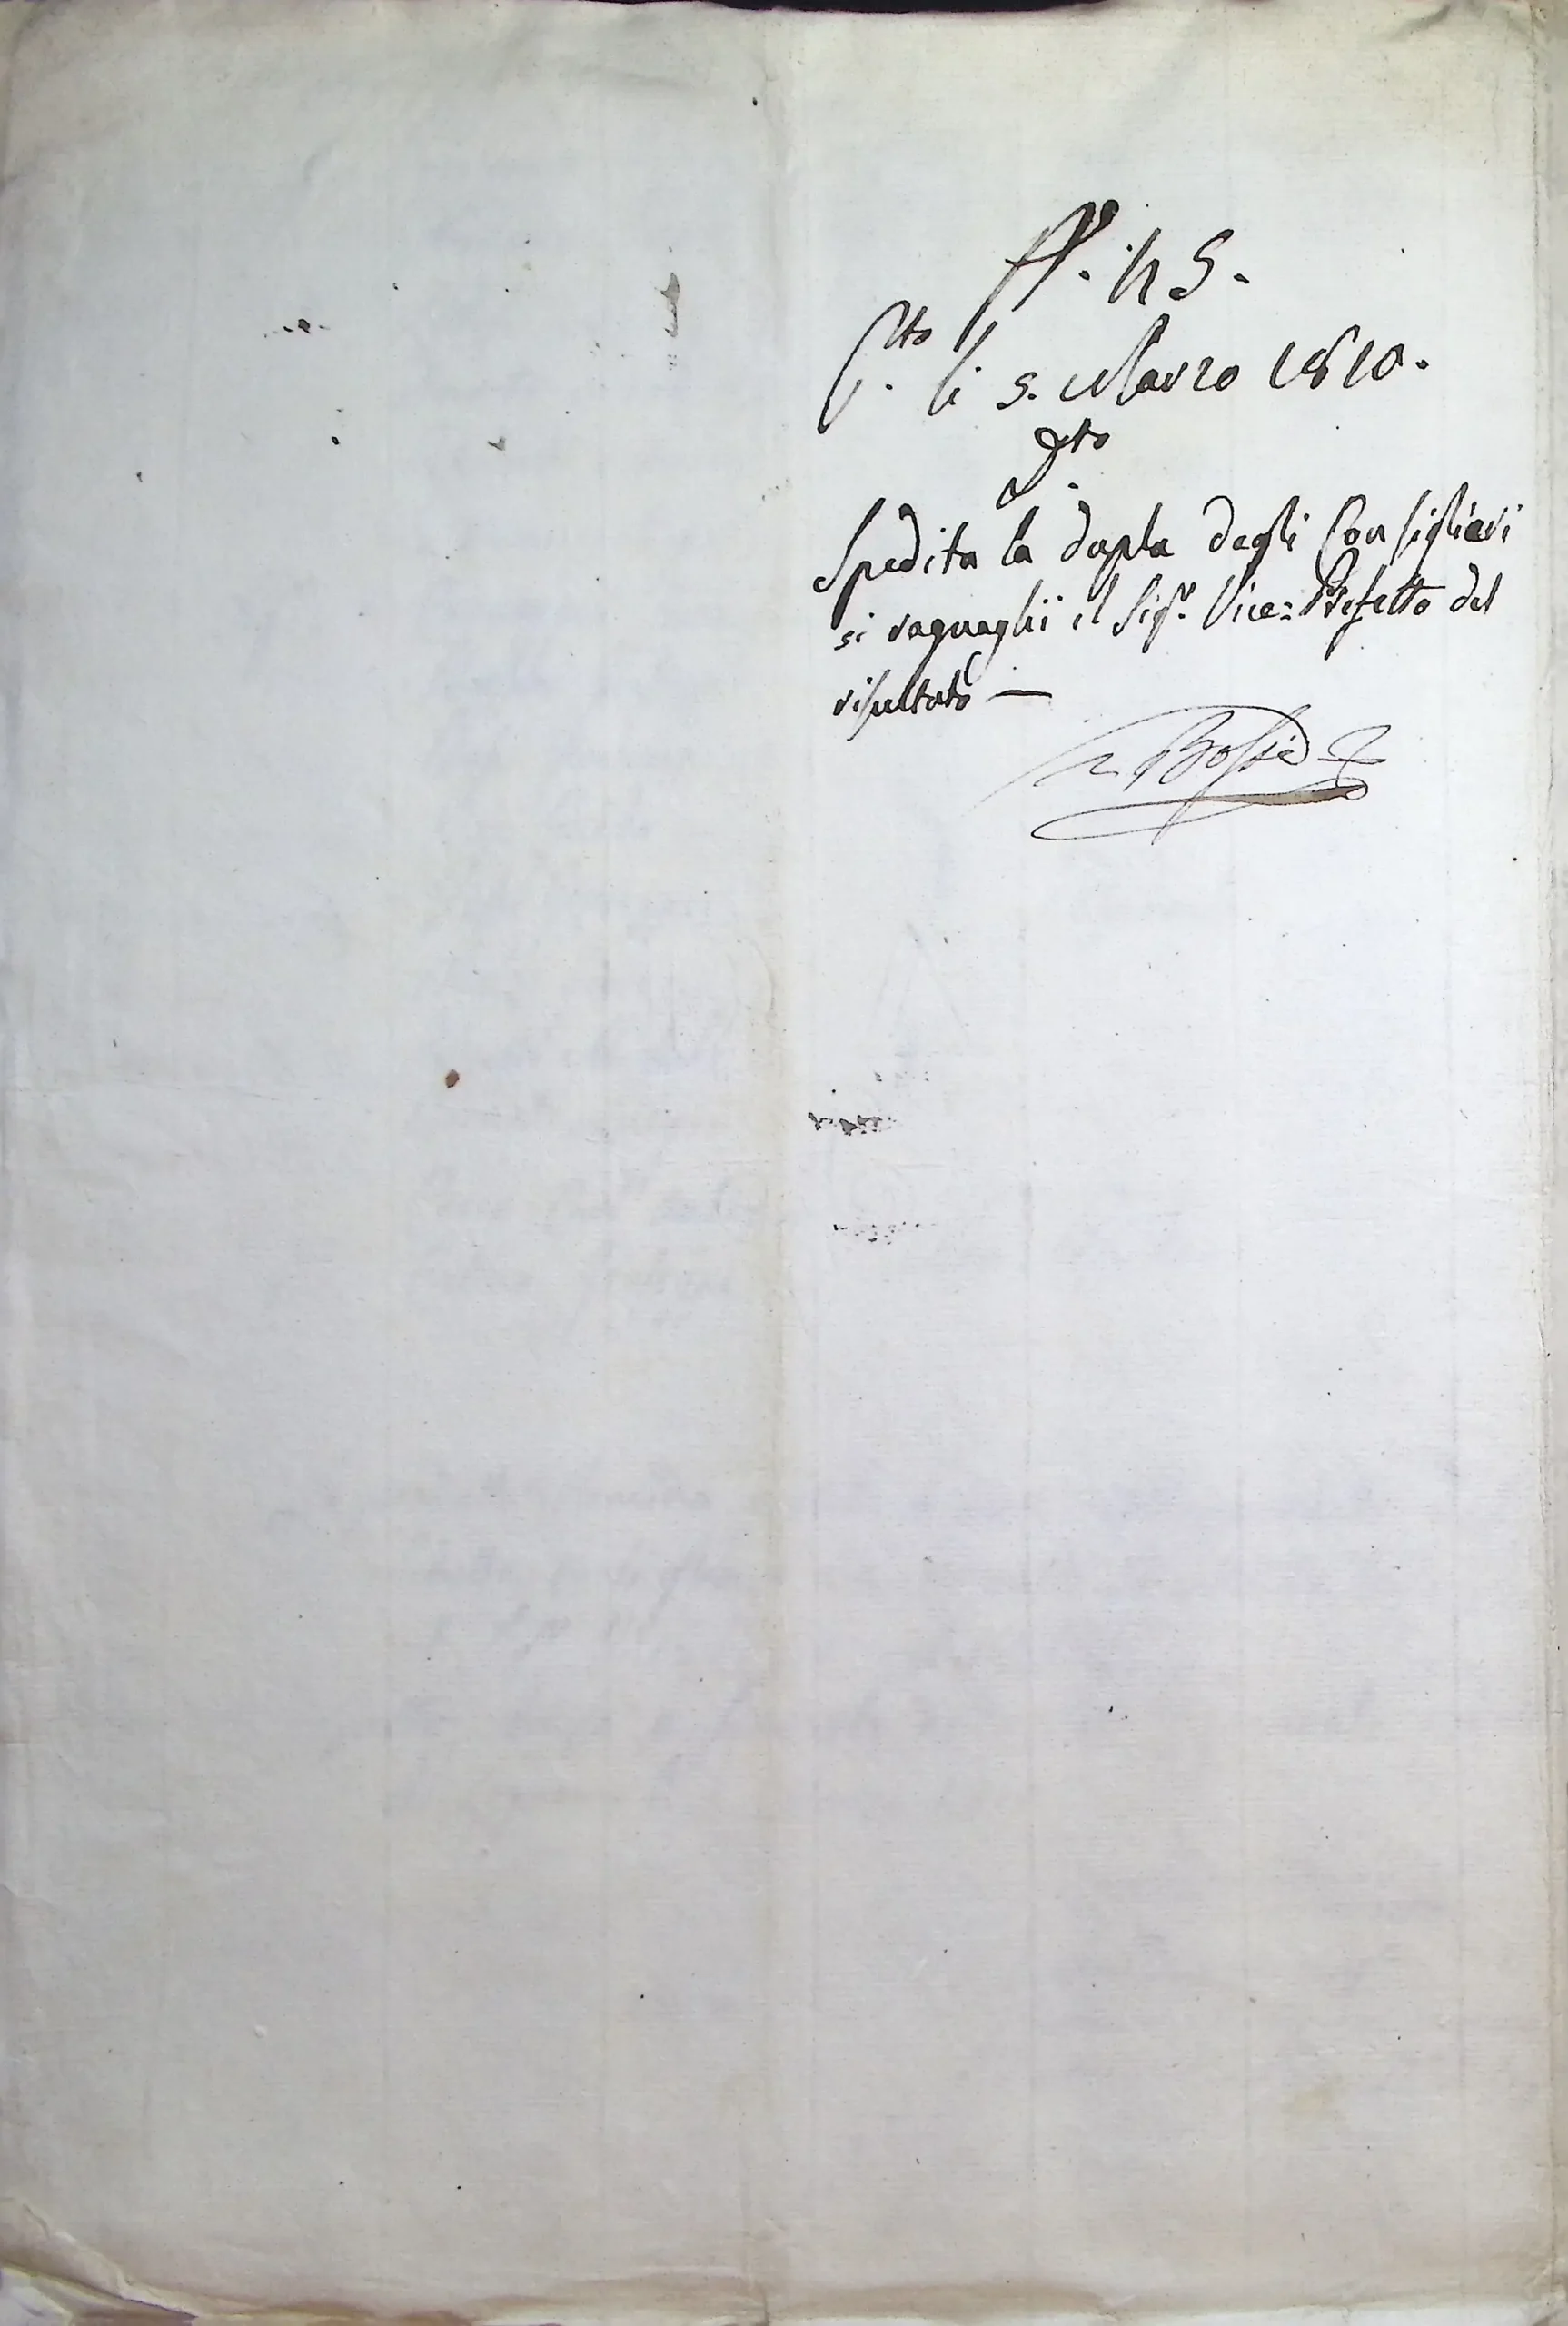 N.° 45.
P.to li 5. Marzo 1810.
D.to
Spedita la dupla degli Consiglieri
si raguaglii il Sig.r Vice=Prefetto del
risultato —
Bossi